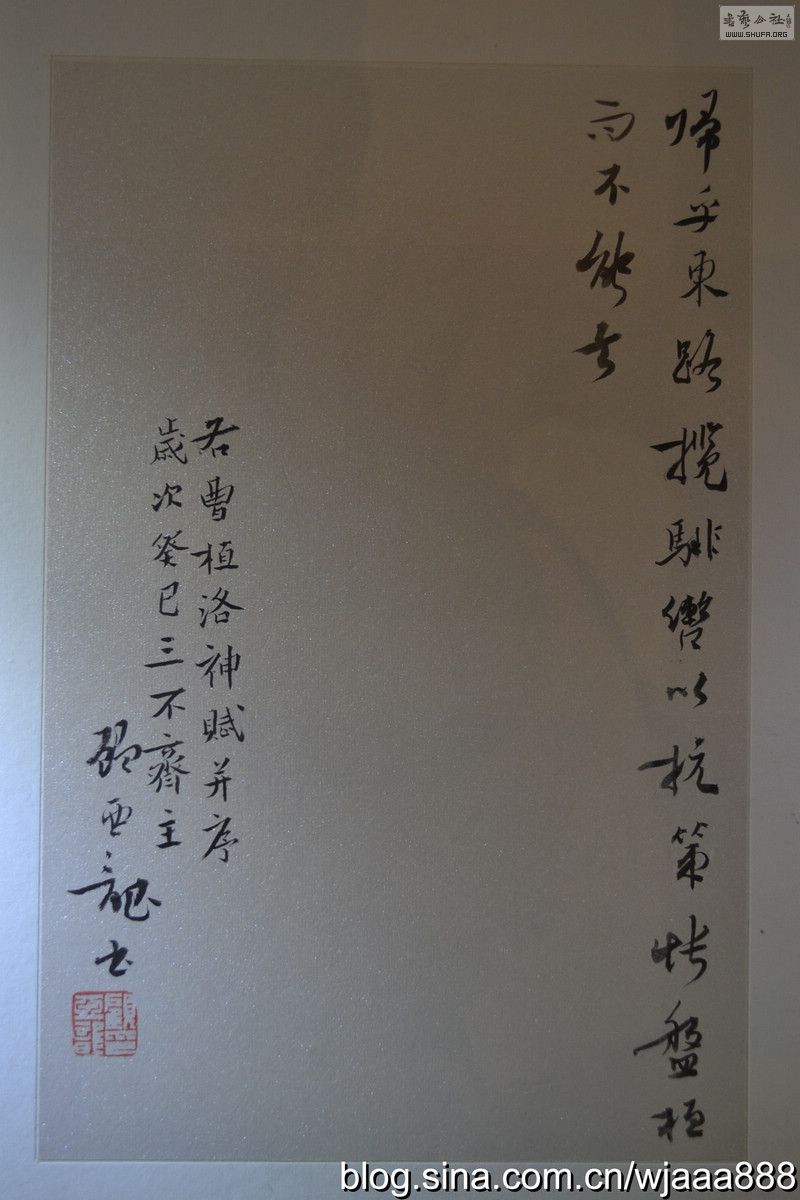 歸乎東路攬騑轡以抗策悵盤桓
而不能去
右曹植洛神賦并序
歲次癸巳三不齋主
顧亞龍書
WWW.SHUFA.ORG
blog.sina.com.cn/wjaaa888